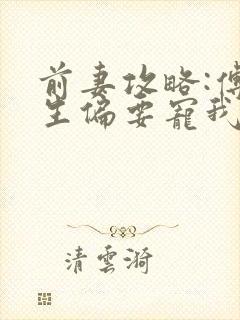 前妻攻略:傅
生偏要寵我
清雲漪